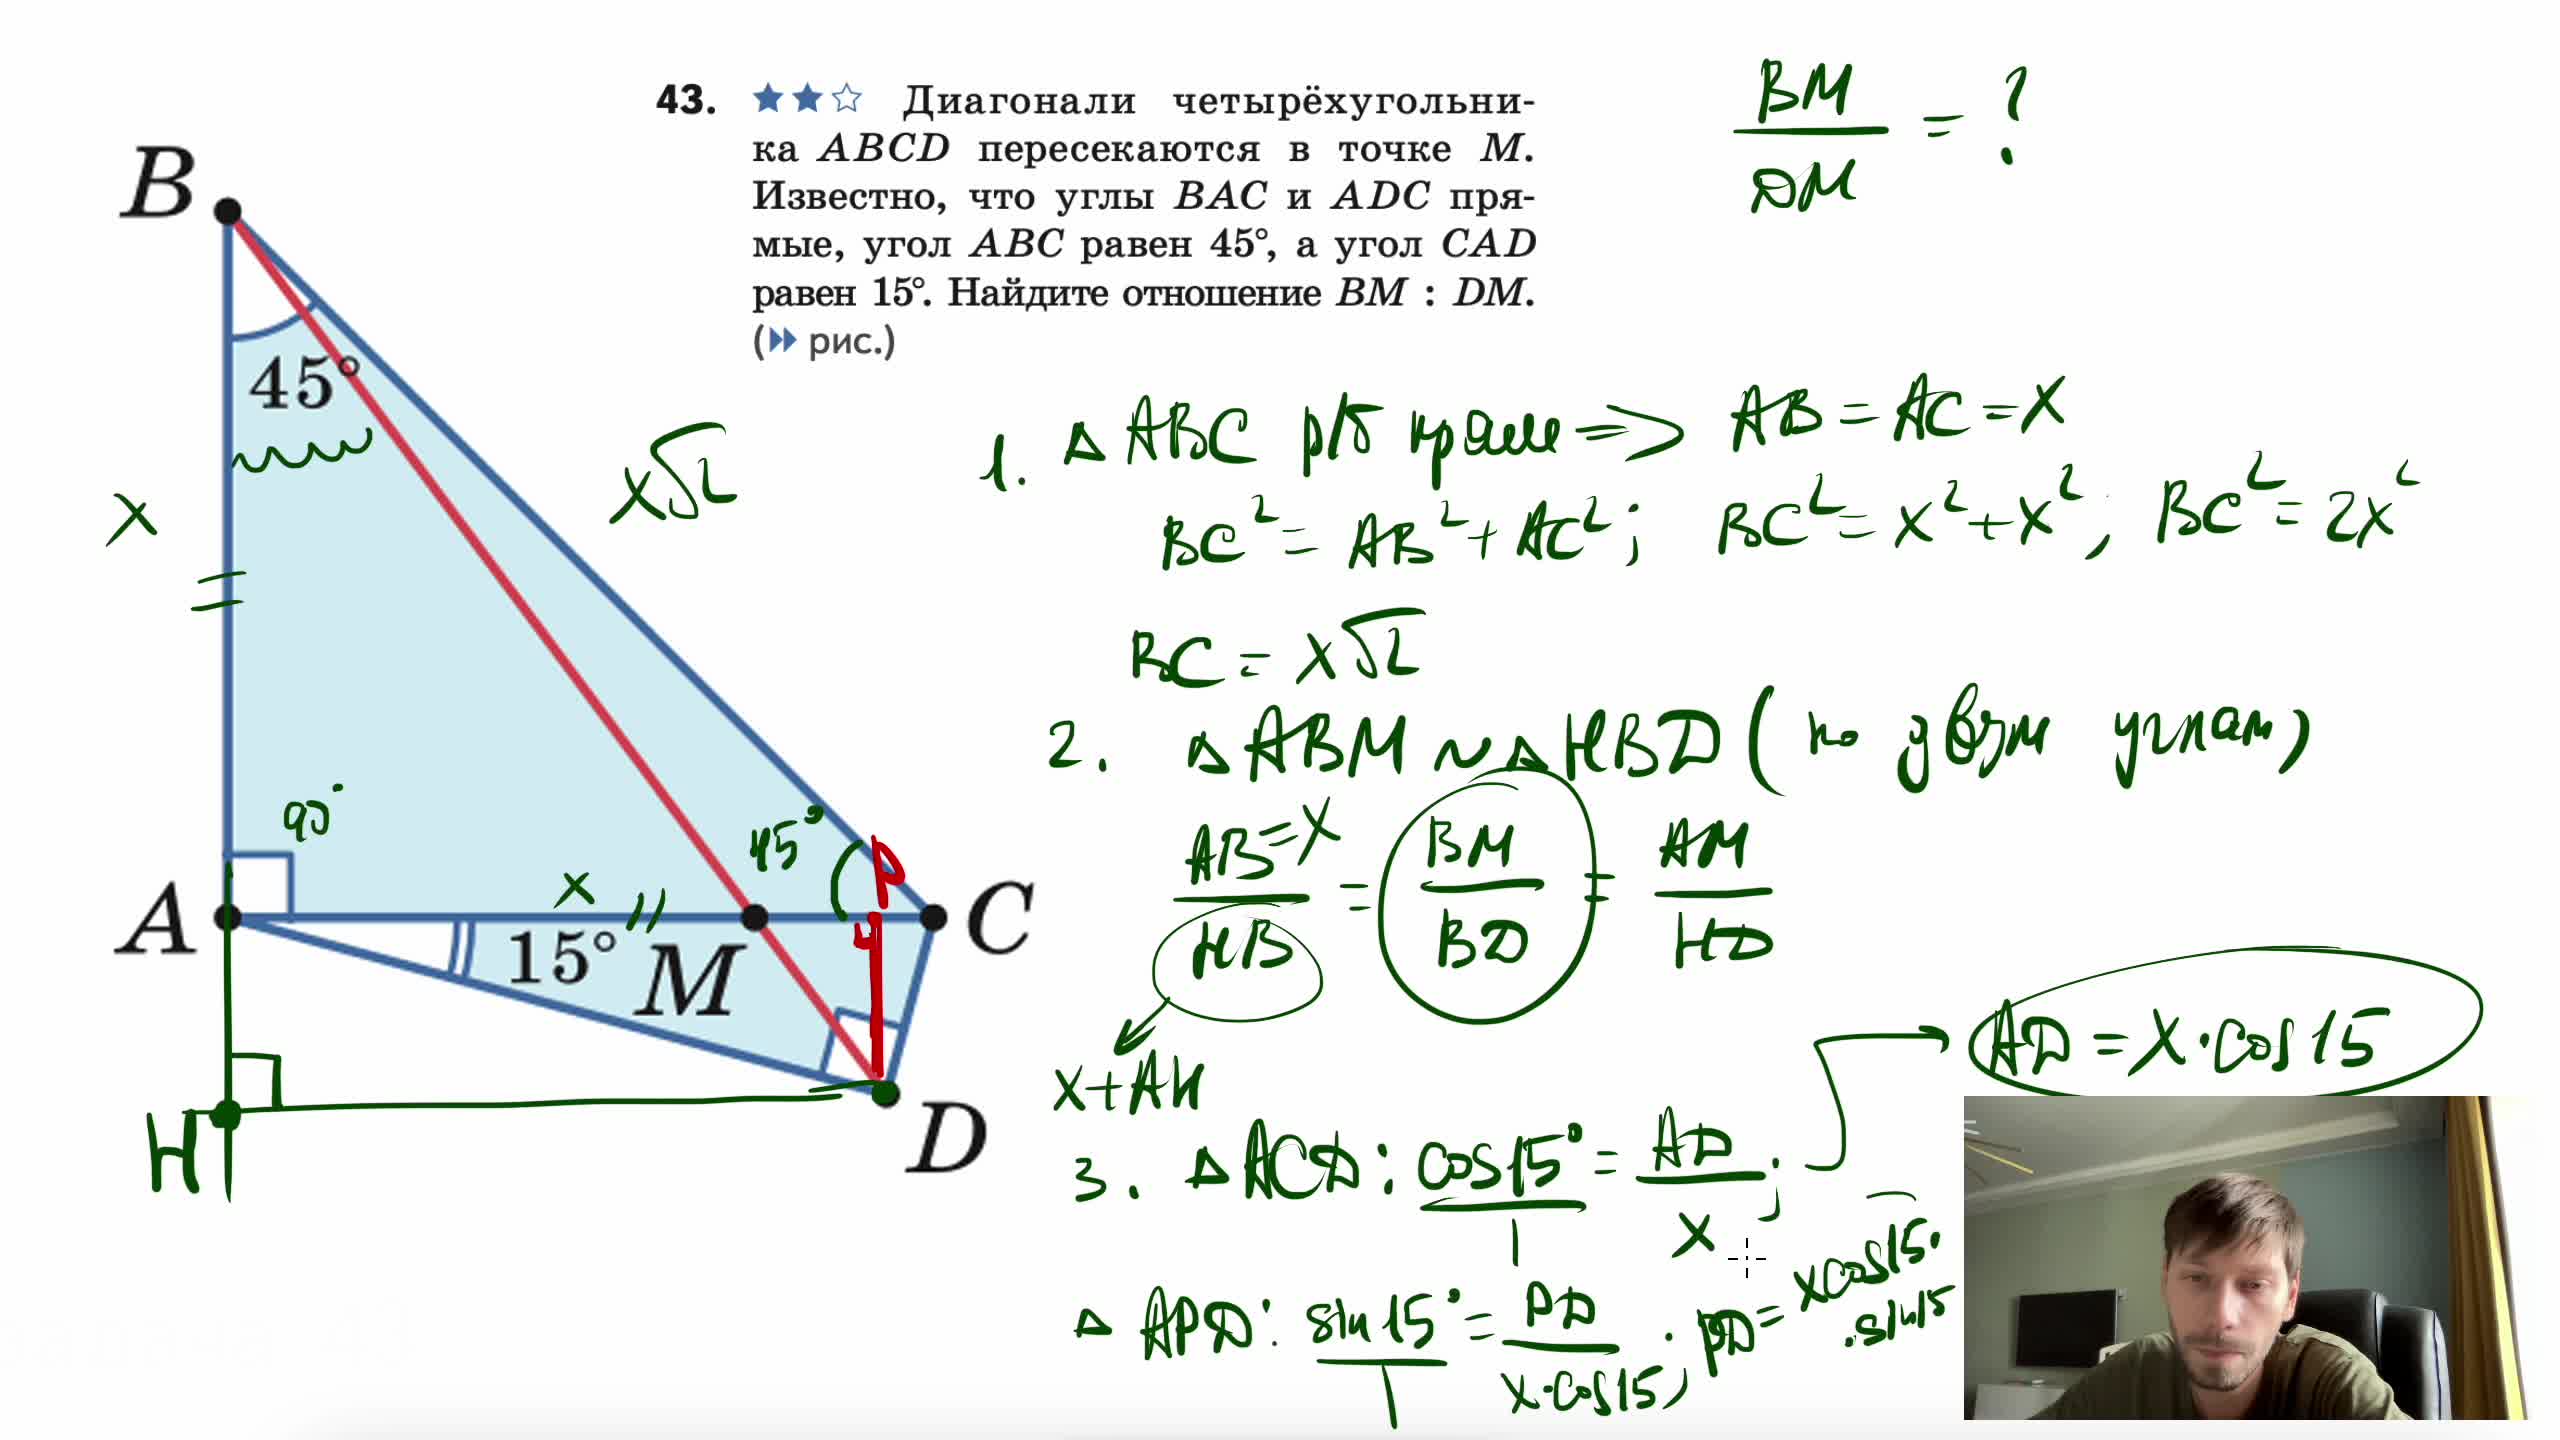 43. ★★☆ Диагонали четырёхугольни-
ка ABCD пересекаются в точке M.
Известно, что углы BAC и ADC пря-
мые, угол ABC равен 45°, а угол CAD
равен 15°. Найдите отношение BM : DM.
(▸▸ рис.)
BM/DM = ?
B
45°
x
x√2
90°
45°
P
A
x
C
15°
M
ч
H
D
1. △ABC р/б прям => AB = AC = x
BC² = AB² + AC²; BC² = x² + x²; BC² = 2x²
BC = x√2
2. △ABM ~ △HBD (по двум углам)
AB=x/HB = BM/BD = AM/HD
x+AH
AD = x·cos15
3. △ACD: cos15°/1 = AD/x;
△APD: sin15°/1 = PD/x·cos15; PD = xcos15·
·sin15